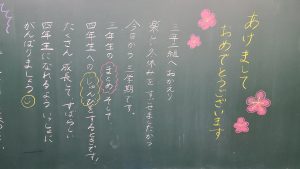 あけまして
おめでとうございます
三年組へおかえり
楽しい冬休みをすごせましたか?
今日から三学期です。
三年生のまとめ、そして
四年生へのじゅんびをするときです。
たくさん成長して、すばらしい
四年生になれるよう、いっしょに
がんばりましょう